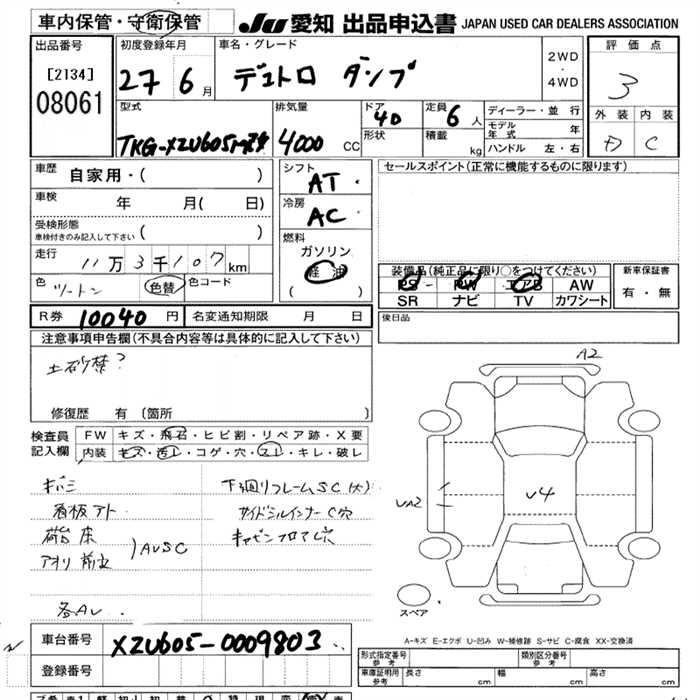 車内保管・守衛保管 JU 愛知 出品申込書 JAPAN USED CAR DEALERS ASSOCIATION
出品番号
[2134]
08061
初度登録年月
27 6月
車名・グレード
デュトロ ダンプ
2WD
・
4WD
評価点
3
外装 内装
D C
型式
TKG-XZU605M改
排気量
4000 CC
ドア 4D
形状
定員 6人
積載 kg
ディーラー・並行
モデル年式 年
ハンドル 左・右
車歴 自家用・( )
車検 年 月( 日)
受検形態
車検付きのみ記入して下さい ( )
走行 11万3千107km
色 ツートン 色替 色コード
シフト AT
冷房 AC
燃料
ガソリン
軽油
( )
セールスポイント(正常に機能するものに限ります)
装備品(純正品に限り○をつけてください)
PS PW エアB AW
SR ナビ TV カワシート
新車保証書
有・無
R券 10040円 名変通知期限 月 日
後日品
注意事項申告欄(不具合内容等は具体的に記入して下さい)
土砂禁?
修復歴 有 〔箇所
検査員記入欄
FW キズ・飛石・ヒビ割・リペア跡・X要
内装 キズ・汚レ・コゲ・穴・スレ・キレ・破レ
キバミ
看板アト
荷台 床
アオリ 前立
)AUSC
各AU
下回リフレームSC(大)
サイドシルインナーC穴
キャビンフロアC穴
A2
UA2
V4
スペア
A-キズ E-エクボ U-凹み W-補修跡 S-サビ C-腐食 XX-交換済
車台番号 XZU605-0009803
登録番号
形式指定番号 参考
類別区分番号 参考
車庫証明用 参考 長さ cm 幅 cm 高さ cm